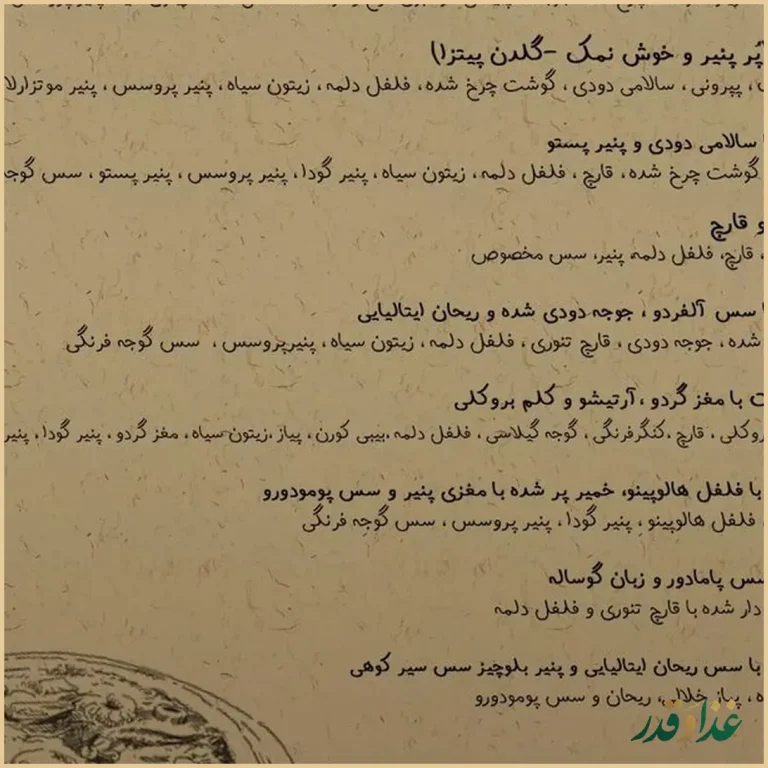 پُر پنیر و خوش نمک -گلدن پیتزا)
، پپرونی ، سالامی دودی ، گوشت چرخ شده، فلفل دلمه ، زیتون سیاه ، پنیر پروسس ، پنیر موتزارلا
سالامی دودی و پنیر پستو
گوشت چرخ شده، قارچ ، فلفل دلمه، زیتون سیاه ، پنیر گودا، پنیر پروسس ، پنیر پستو ، سس گوجه
و قارچ
، قارچ، فلفل دلمه، پنیر، سس مخصوص
سس آلفردو ، جوجه دودی شده و ریحان ایتالیایی
شده ، جوجه دودی ، قارچ تنوری ، فلفل دلمه ، زیتون سیاه ، پنیرپروسس ، سس گوجه فرنگی
با مغز گردو ،آرتیشو و کلم بروکلی
روکلی ، قارچ ،کنگرفرنگی ، گوجه گیلاسی ، فلفل دلمه ،بیبی کورن ، پیاز ،زیتون سیاه ، مغز گردو ، پنیر گودا، پنیر
با فلفل هالوپینو، خمیر پر شده با مغزی پنیر و سس پومودورو
فلفل هالوپینو ، پنیر گودا، پنیر پروسس ، سس گوجه فرنگی
سس پامادور و زبان گوساله
دار شده با قارچ تنوری و فلفل دلمه
با سس ریحان ایتالیایی و پنیر بلوچیز سس سیر کوهی
ه ، پیاز خلالی، ریحان و سس پومودورو
غذا و قدر